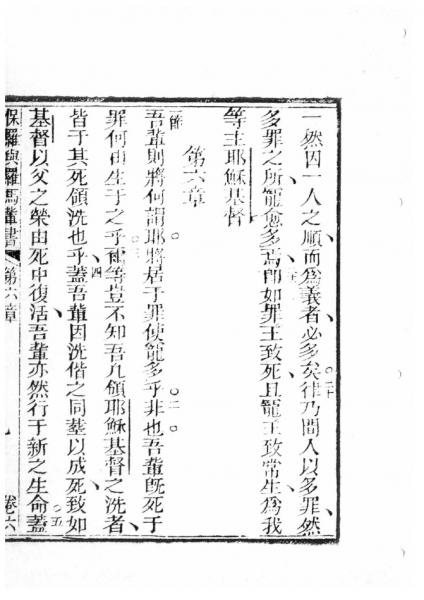 一然因一人之順而爲義者必多矣律乃間人以多罪然
多罪之所寵愈多焉卽如罪王致死且寵王致常生爲我
等主耶穌基督
第六章
一節
吾輩則將何謂耶將居于罪使寵多乎非也吾輩旣死于
罪何由生于之乎爾等豈不知吾凡領耶穌基督之洗者
皆于其死領洗也乎蓋吾輩因洗偕之同塟以成死致如
基督以父之榮由死中復活吾輩亦然行于新之生命蓋
保羅與羅馬輩書 第六章 卷六